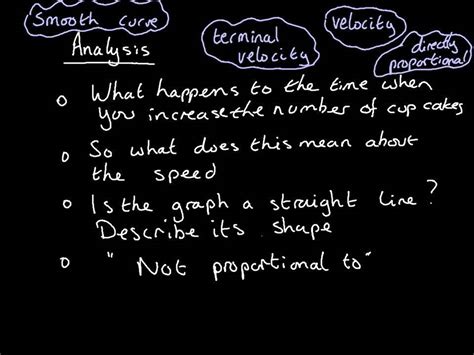 Smooth curve
terminal velocity
velocity
directly proportional
Analysis
o What happens to the time when
you increase the number of cup cakes
o So what does this mean about
the speed
o Is the graph a straight line?
Describe its shape
o "Not proportional to"